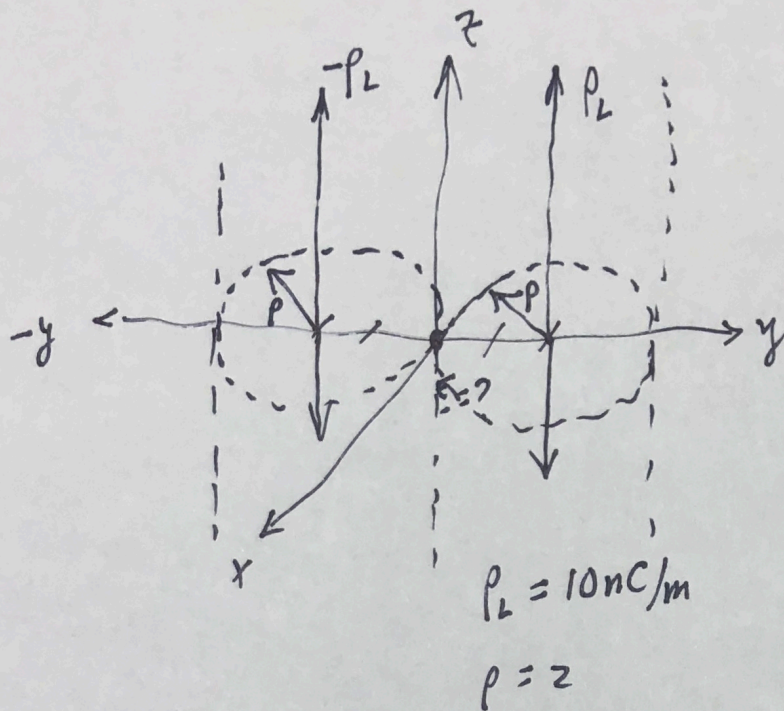 z
-ρL
ρL
ρ
ρ
-y
y
x
ρL = 10nC/m
ρ = 2